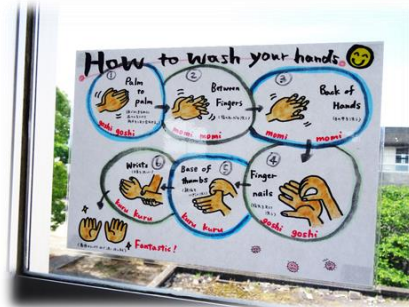 How to wash your hands.
①
Palm
to
palm
goshi goshi
②
Between
Fingers
momi momi
③
Back of
Hands
momi momi
④
Finger
nails
goshi goshi
⑤
Base of
thumbs
kuru kuru
⑥
Wrists
kuru kuru
Fantastic!